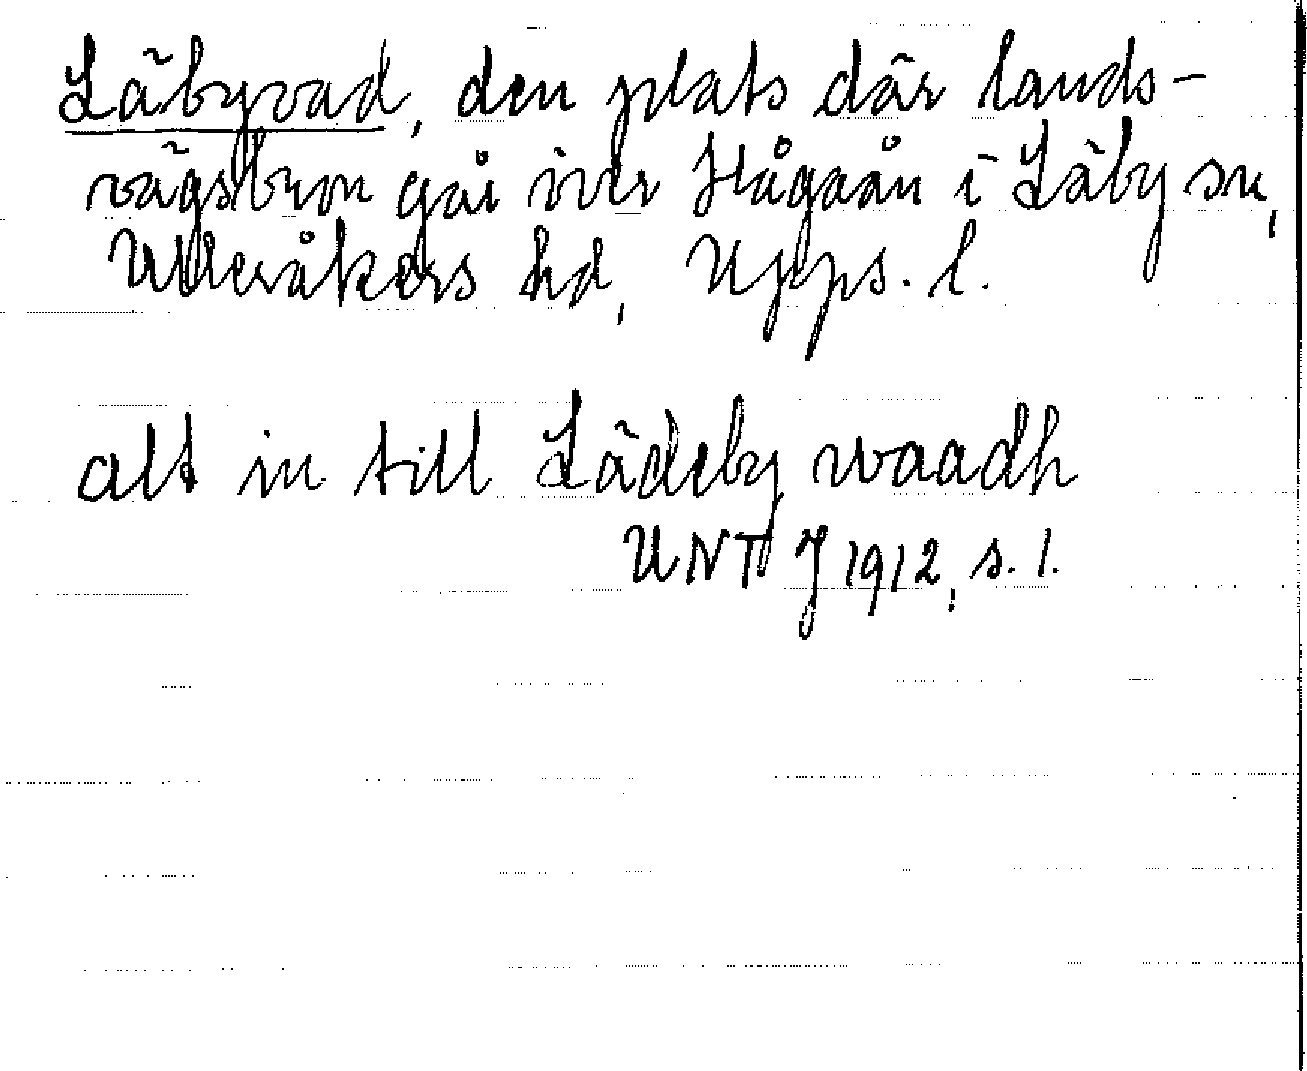 Läbyvad, den plats där lands-
vägsbron går över Hågaån i Läby sn,
Ulleråkers hd, Upps. l.
alt in till Lädeby waadh
UNT J 1912, s. 1.